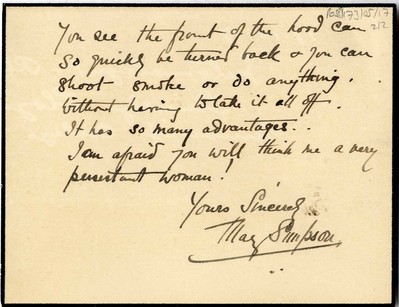 1/08/73/05/17
2/2
You see the front of the hood can
so quickly be turned back & you can
shoot smoke or do anything.
without having to take it all off.
It has so many advantages..
I am afraid you will think me a very
persestant woman!
Yours Sincerely
May Simpson